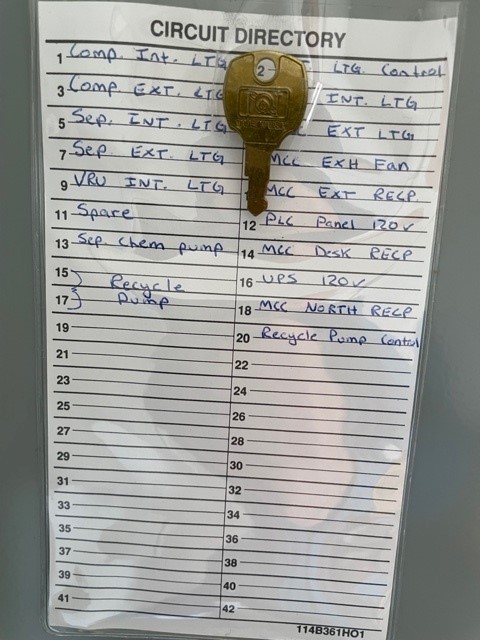 CIRCUIT DIRECTORY
1 Comp. Int. LTG
2 LTG. Control
3 Comp EXT. LTG
INT. LTG
5 Sep. INT. LTG
EXT LTG
7 Sep. EXT. LTG
MCC EXH Fan
9 VRU INT. LTG
MCC EXT RECP.
11 Spare
12 PLC Panel 120v
13 Sep. Chem pump
14 MCC Desk RECP
15 } Recycle
16 UPS 120v
17 } Pump
18 MCC NORTH RECP
19
20 Recycle Pump Control
21
22
23
24
25
26
27
28
29
30
31
32
33
34
35
36
37
38
39
40
41
42
114B361HO1